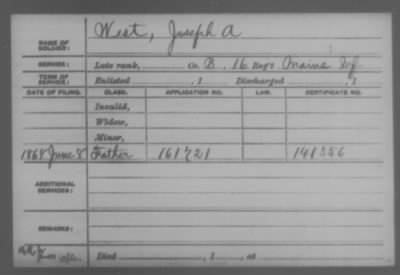 NAME OF SOLDIER: West, Joseph A
SERVICE: Late rank, Co. B, 16 Reg't Maine Inf
TERM OF SERVICE: Enlisted , 1 Discharged , 1
DATE OF FILING. CLASS. APPLICATION NO. LAW. CERTIFICATE NO.
Invalid,
Widow,
Minor,
1868 June 8 Father 161721 141356
ADDITIONAL SERVICES:
REMARKS:
Died , 1 , at